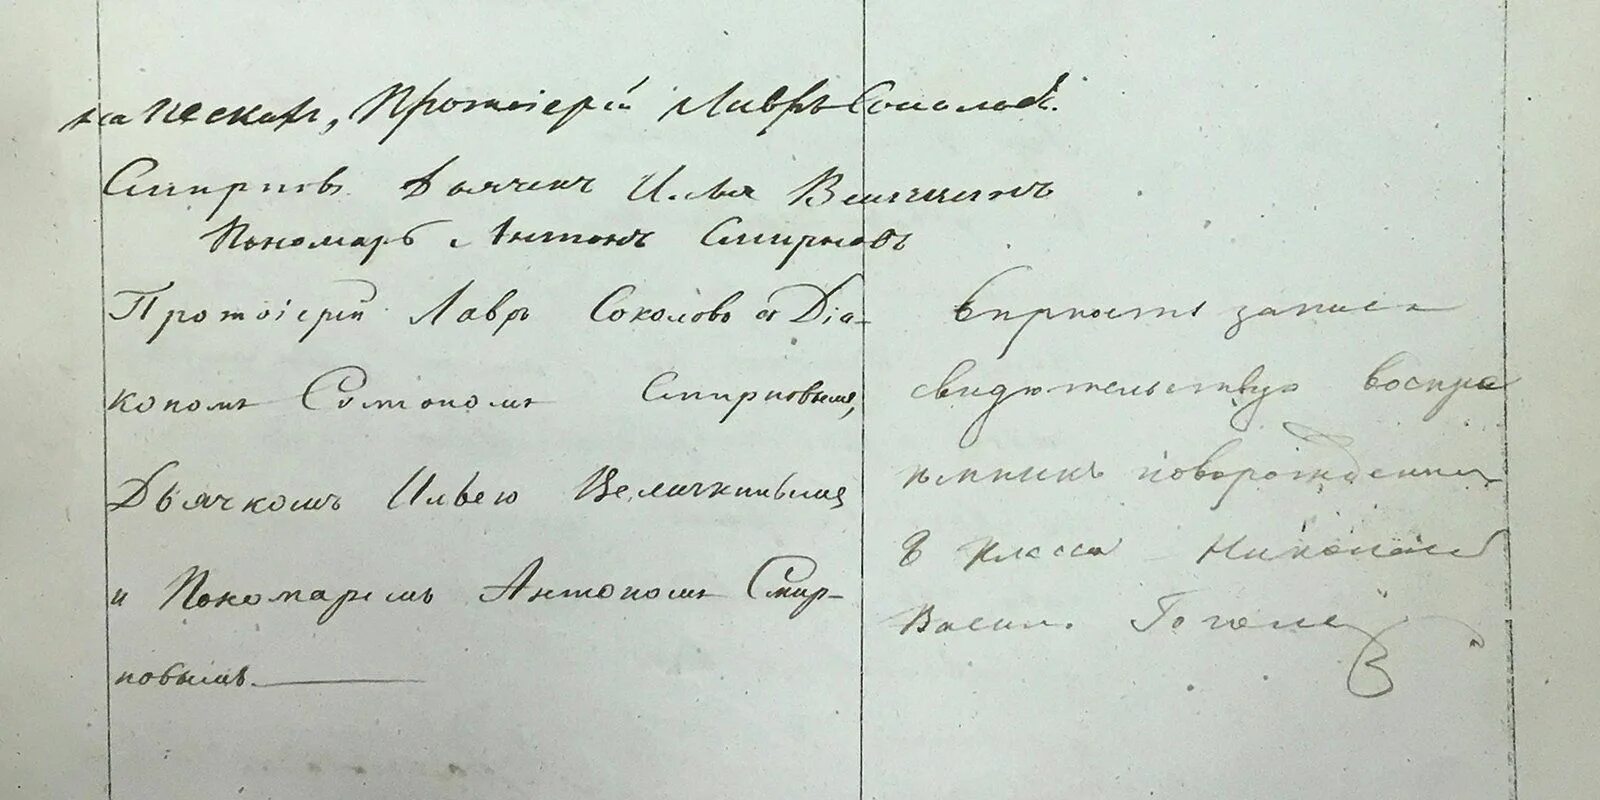 на Пескахъ, Протоіерей Лавръ Соколовъ.
Смирновъ. Дьячекъ Илья Величкинъ
Пономарь Антонъ Смирновъ
Протоіерей Лавръ Соколовъ съ Діа-
кономъ Смирновымъ,
Дьячкомъ Ильею Величкинымъ
и Пономаремъ Антономъ Смир-
новымъ.
Вѣрность записи
свидѣтельствую воспрі-
емникъ новорожденнаго
8 класса Николай
Васил. Гоголь